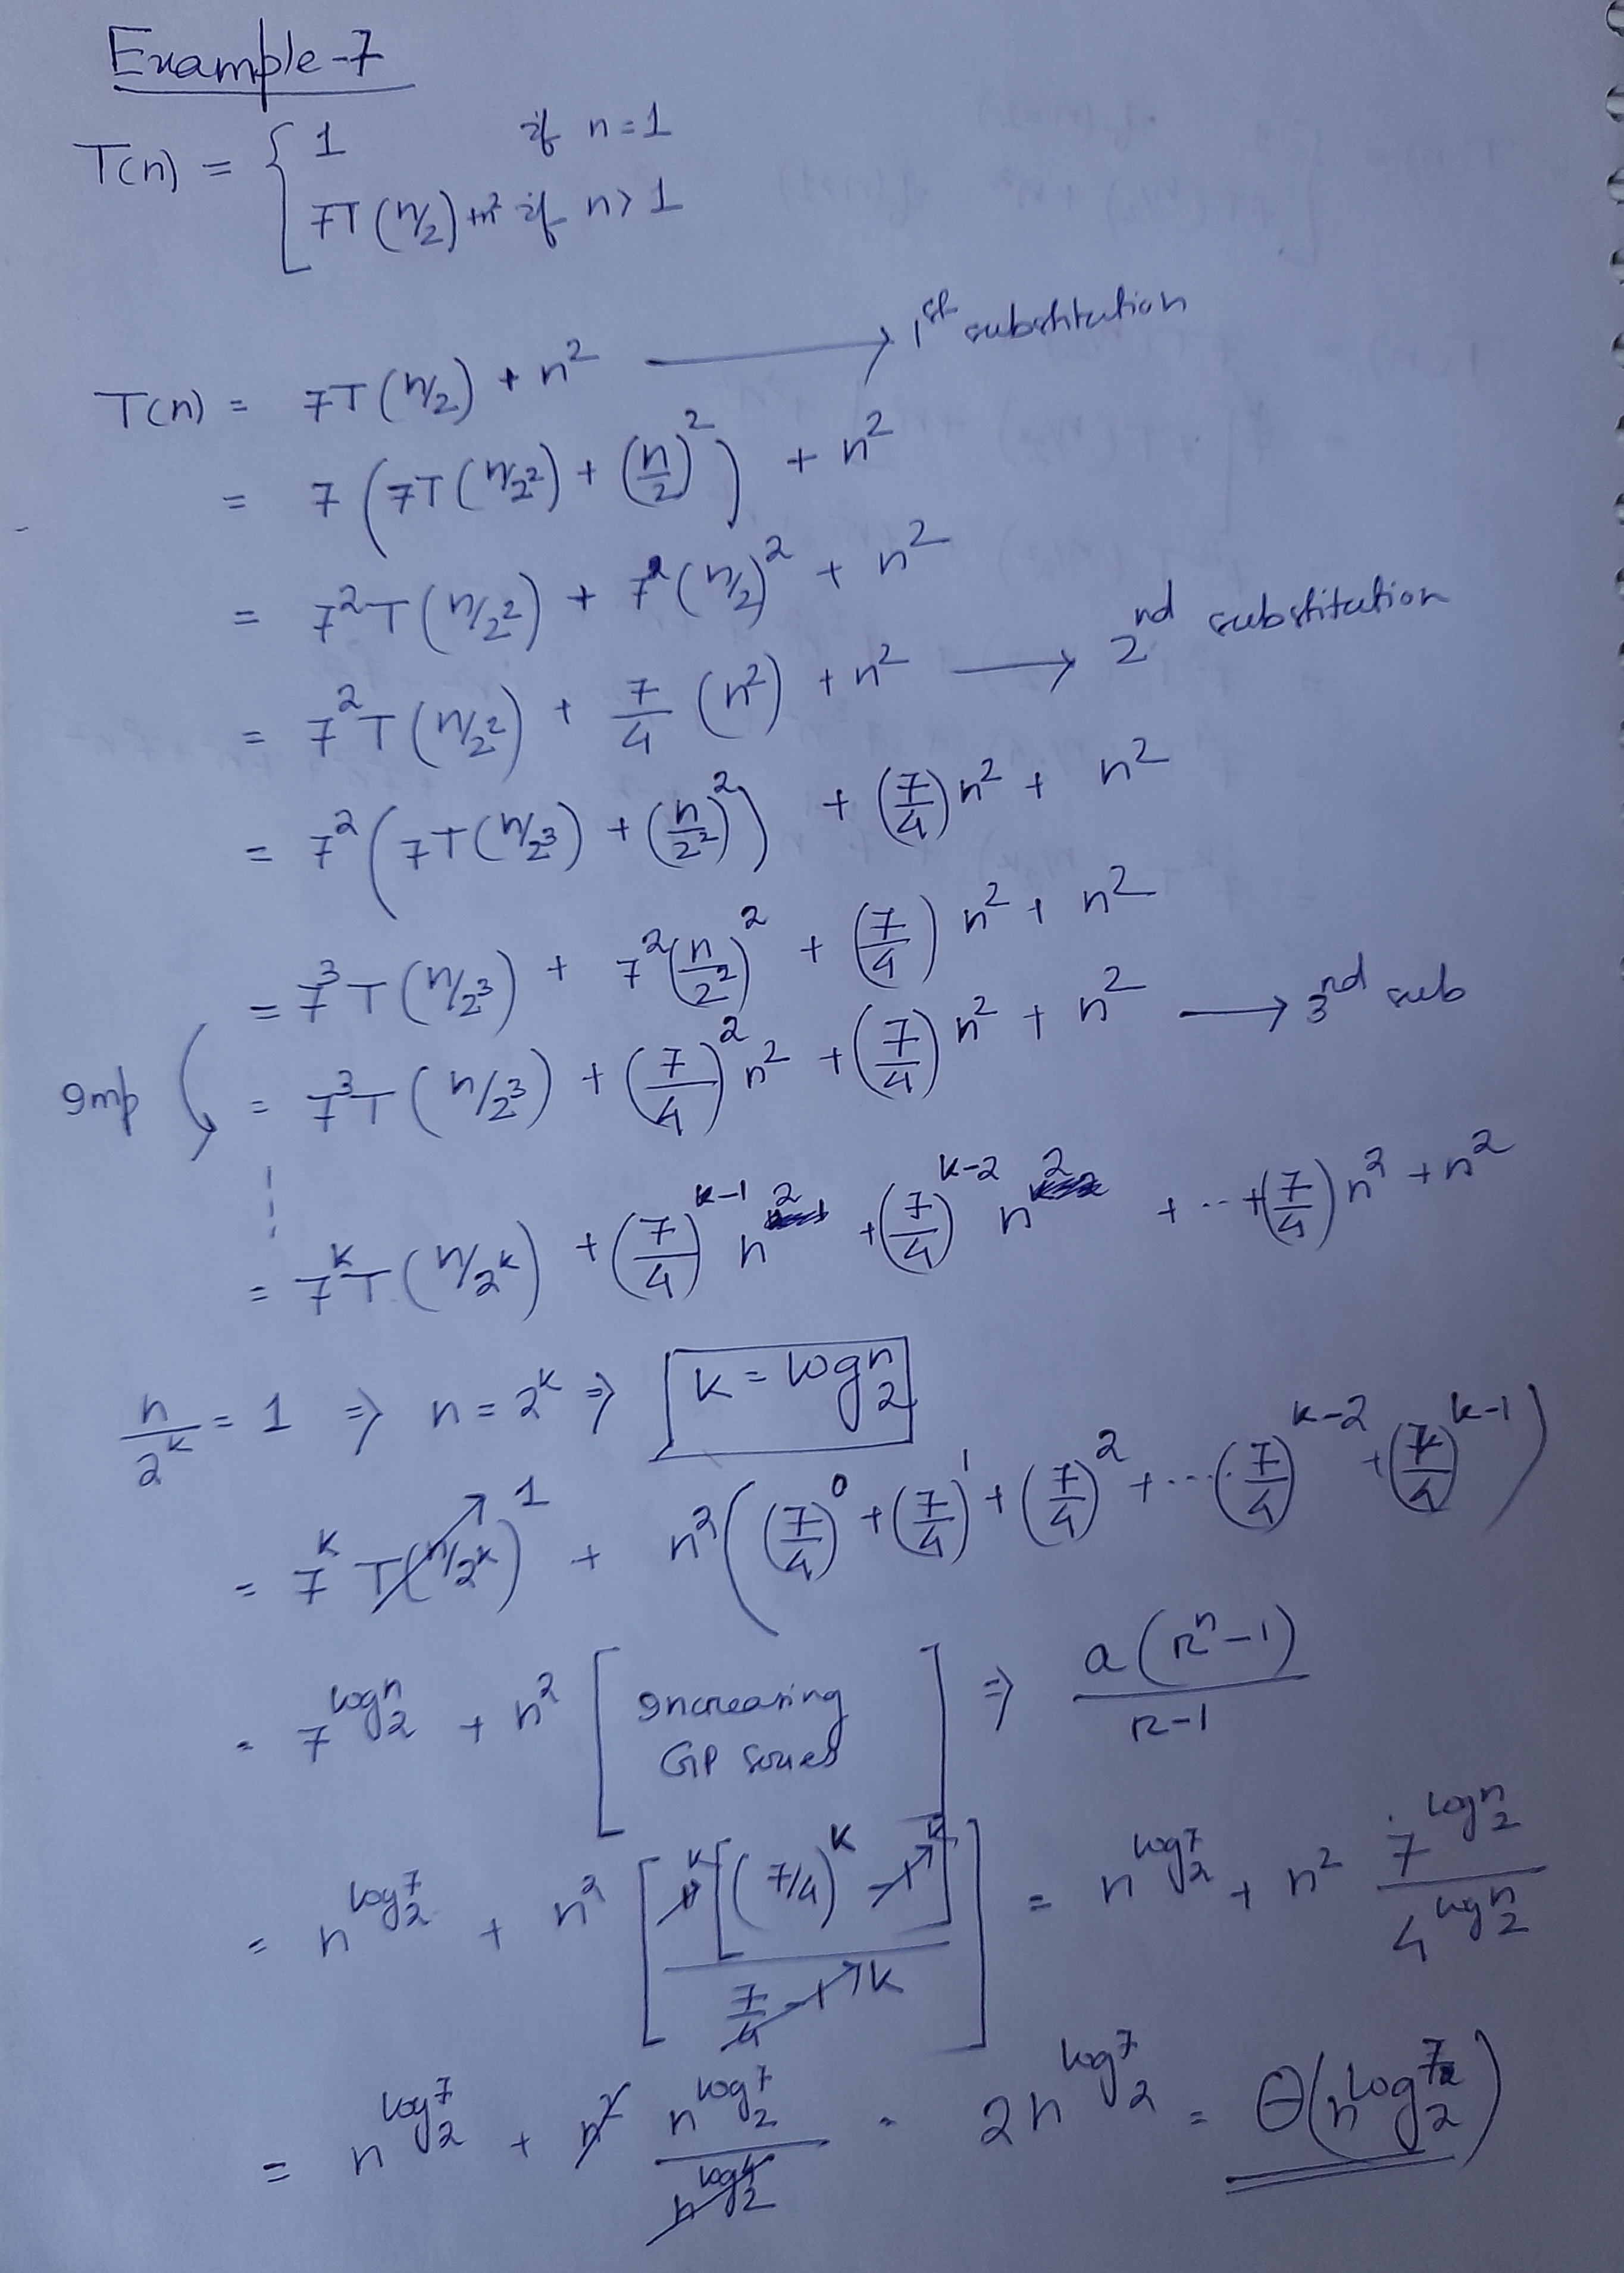 Example-7
T(n) = { 1 if n=1
7T(n/2)+n² if n>1
T(n) = 7T(n/2) + n² → 1st substitution
= 7(7T(n/2²) + (n/2)²) + n²
= 7²T(n/2²) + 7(n/2)² + n²
= 7²T(n/2²) + 7/4 (n²) + n² → 2nd substitution
= 7²(7T(n/2³) + (n/2²)²) + (7/4)n² + n²
= 7³T(n/2³) + 7²(n/2²)² + (7/4)n² + n²
Imp = 7³T(n/2³) + (7/4)²n² + (7/4)n² + n² → 3rd sub
= 7^k T(n/2^k) + (7/4)^(k-1) n² + (7/4)^(k-2) n² + ... + (7/4)n² + n²
n/2^k = 1 ⇒ n = 2^k ⇒ k = log₂ⁿ
= 7^k T(n/2^k) → 1 + n²((7/4)⁰ + (7/4)¹ + (7/4)² + .... (7/4)^(k-2) + (7/4)^(k-1))
= 7^(log₂ⁿ) + n² [Increasing GP Series] ⇒ a(r^n - 1)/(r-1)
= n^(log₂7) + n² [[(7/4)^k - 1]/(7/4 - 1)] = n^(log₂7) + n² 7^(log₂ⁿ)/4^(log₂ⁿ)
= n^(log₂7) + n² n^(log₂7)/n^(log₂4) = 2n^(log₂7) = Θ(n^(log₂7))